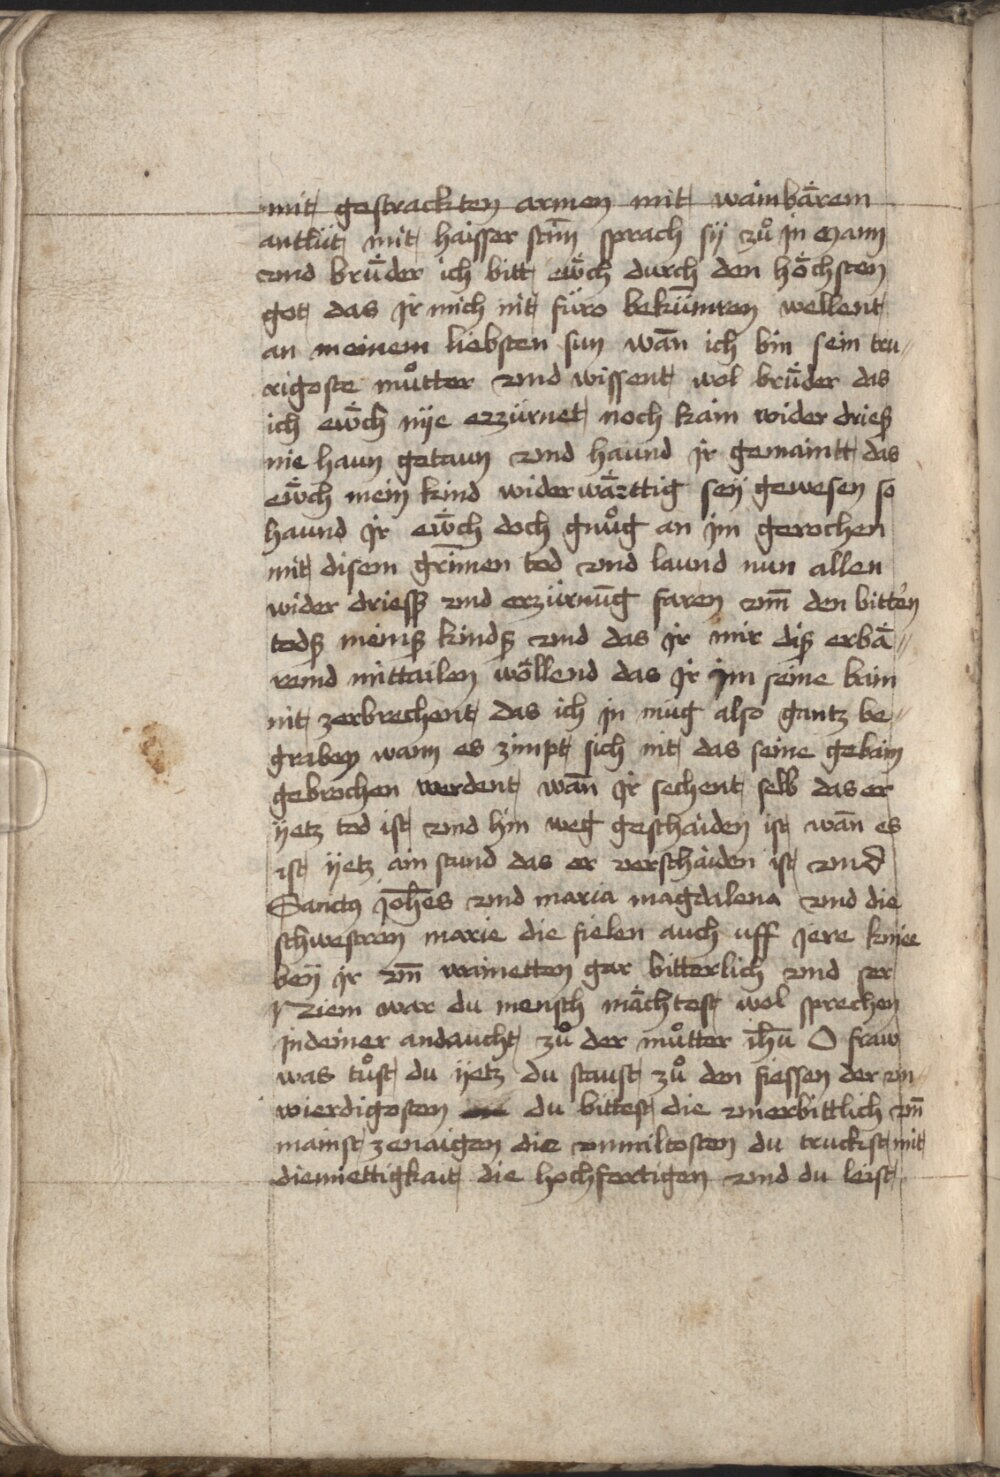 mit gestrackten armen mit wainbärem
antlüt mit haisser stim̄ sprach sÿ zuͦ jn mann
vnd bruͤder ich bitt eẅch durch den höchsten
got das jr mich nit fúro bekúm̄ren wellent
an meinem liebsten sun wan̄ ich bin sein tru„
rigoste muͦtter vnd wissent wol bruͤder das
ich eẅch nÿe erzúrnet noch kain wider drieß
nie haun getaun vnd haund jr gemaintt das
eẅch mein kind widerwärttig seÿ gewesen so
haund jr eẅch doch gnuͦg an jm gerochen
mit disem grim̄en tod vnd laund nun allen
wider driesß vnd erzúrnūg faren vm̄ den bitt'en
todß meinß kindß vnd das jr mir diß erbä„
remd mittailen wöllend das jr jm seine bain
nit zerbrechent das ich jn múg also gantz be„
graben wann es zimpt sich nit das seine gebain
gebrochen werdent wan̄ jr sechent selb das er
ÿetz tod ist vnd hin weg geschaiden ist wan̄ es
ist ÿetz ain stund das er verschaiden ist vnd
Sanctus joh̄es vnd maria magdalena vnd die
schwestren marie die fielen auch uff jere knice
beÿ jr vn̄ wainetten gar bitterlich vnd ser
Niem war du mensch mächtest wol sprechen
jn deiner andaucht zuͦ der muͦtter ih̄u O fraw
was tuͦst du ÿetz du staust zuͦ den fiessen der vn„
wierdigosten du bittest die vnerbittlich vn̄
mainst zenaigen die vnmiltosten du truckst mit
diemiettigkait die hochfertigen vnd du leist